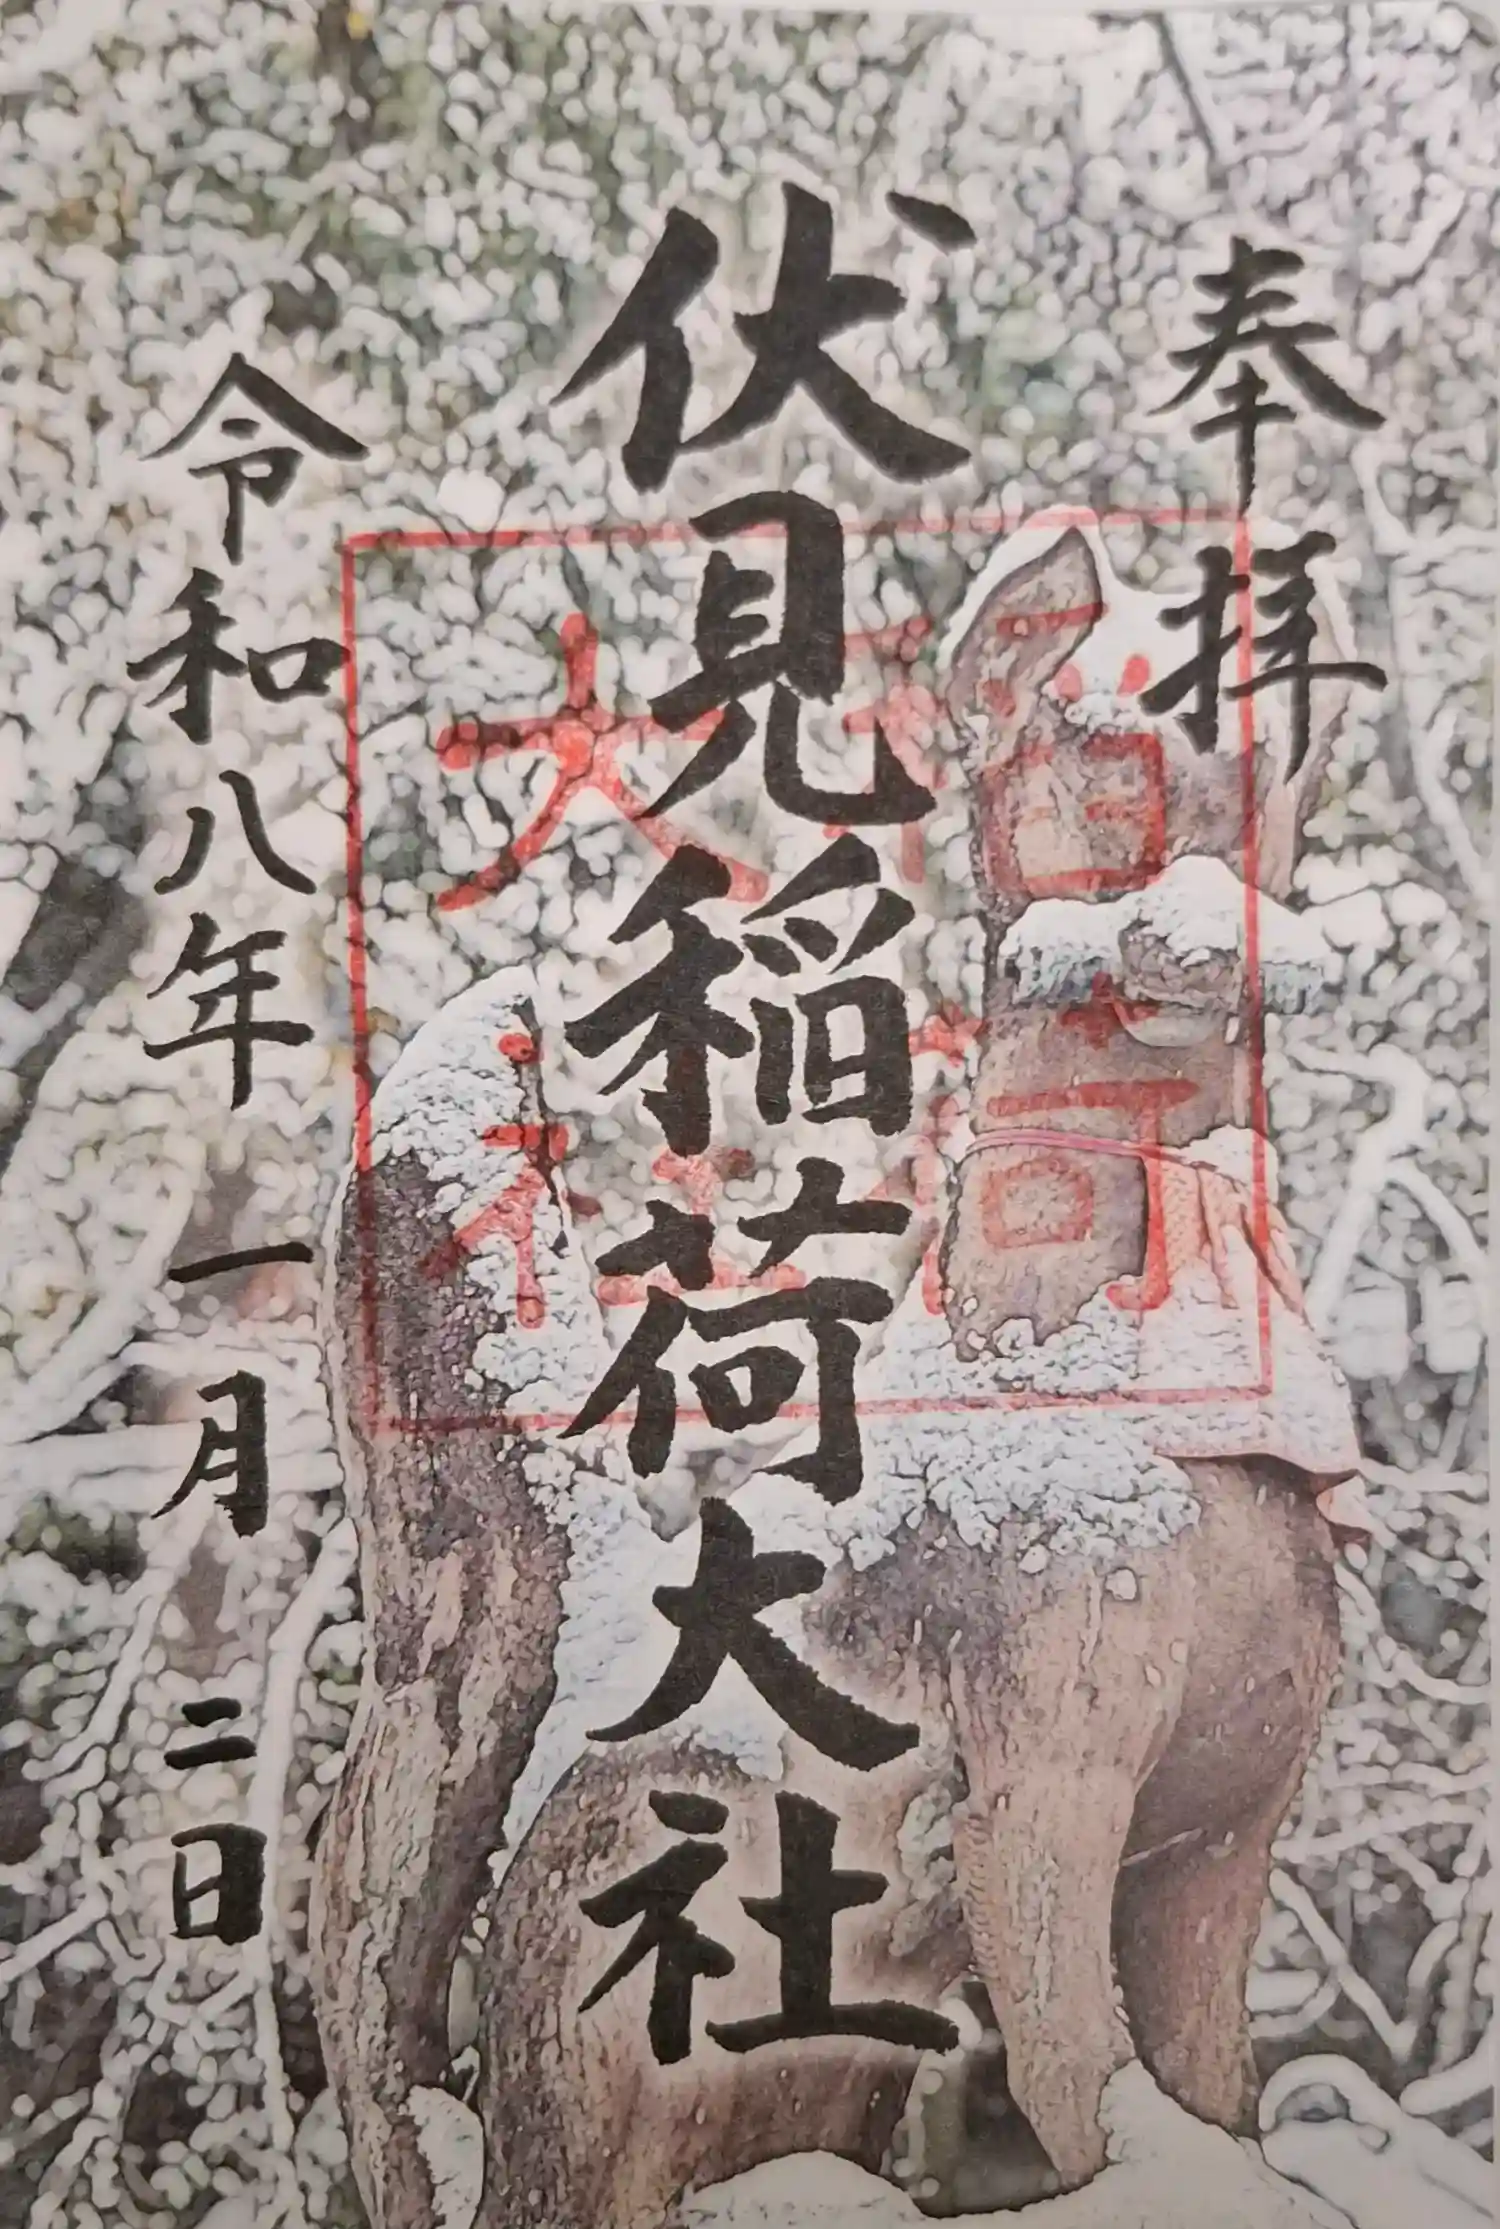 奉拝
伏見稲荷大社
稲荷
大社
令和八年一月二日